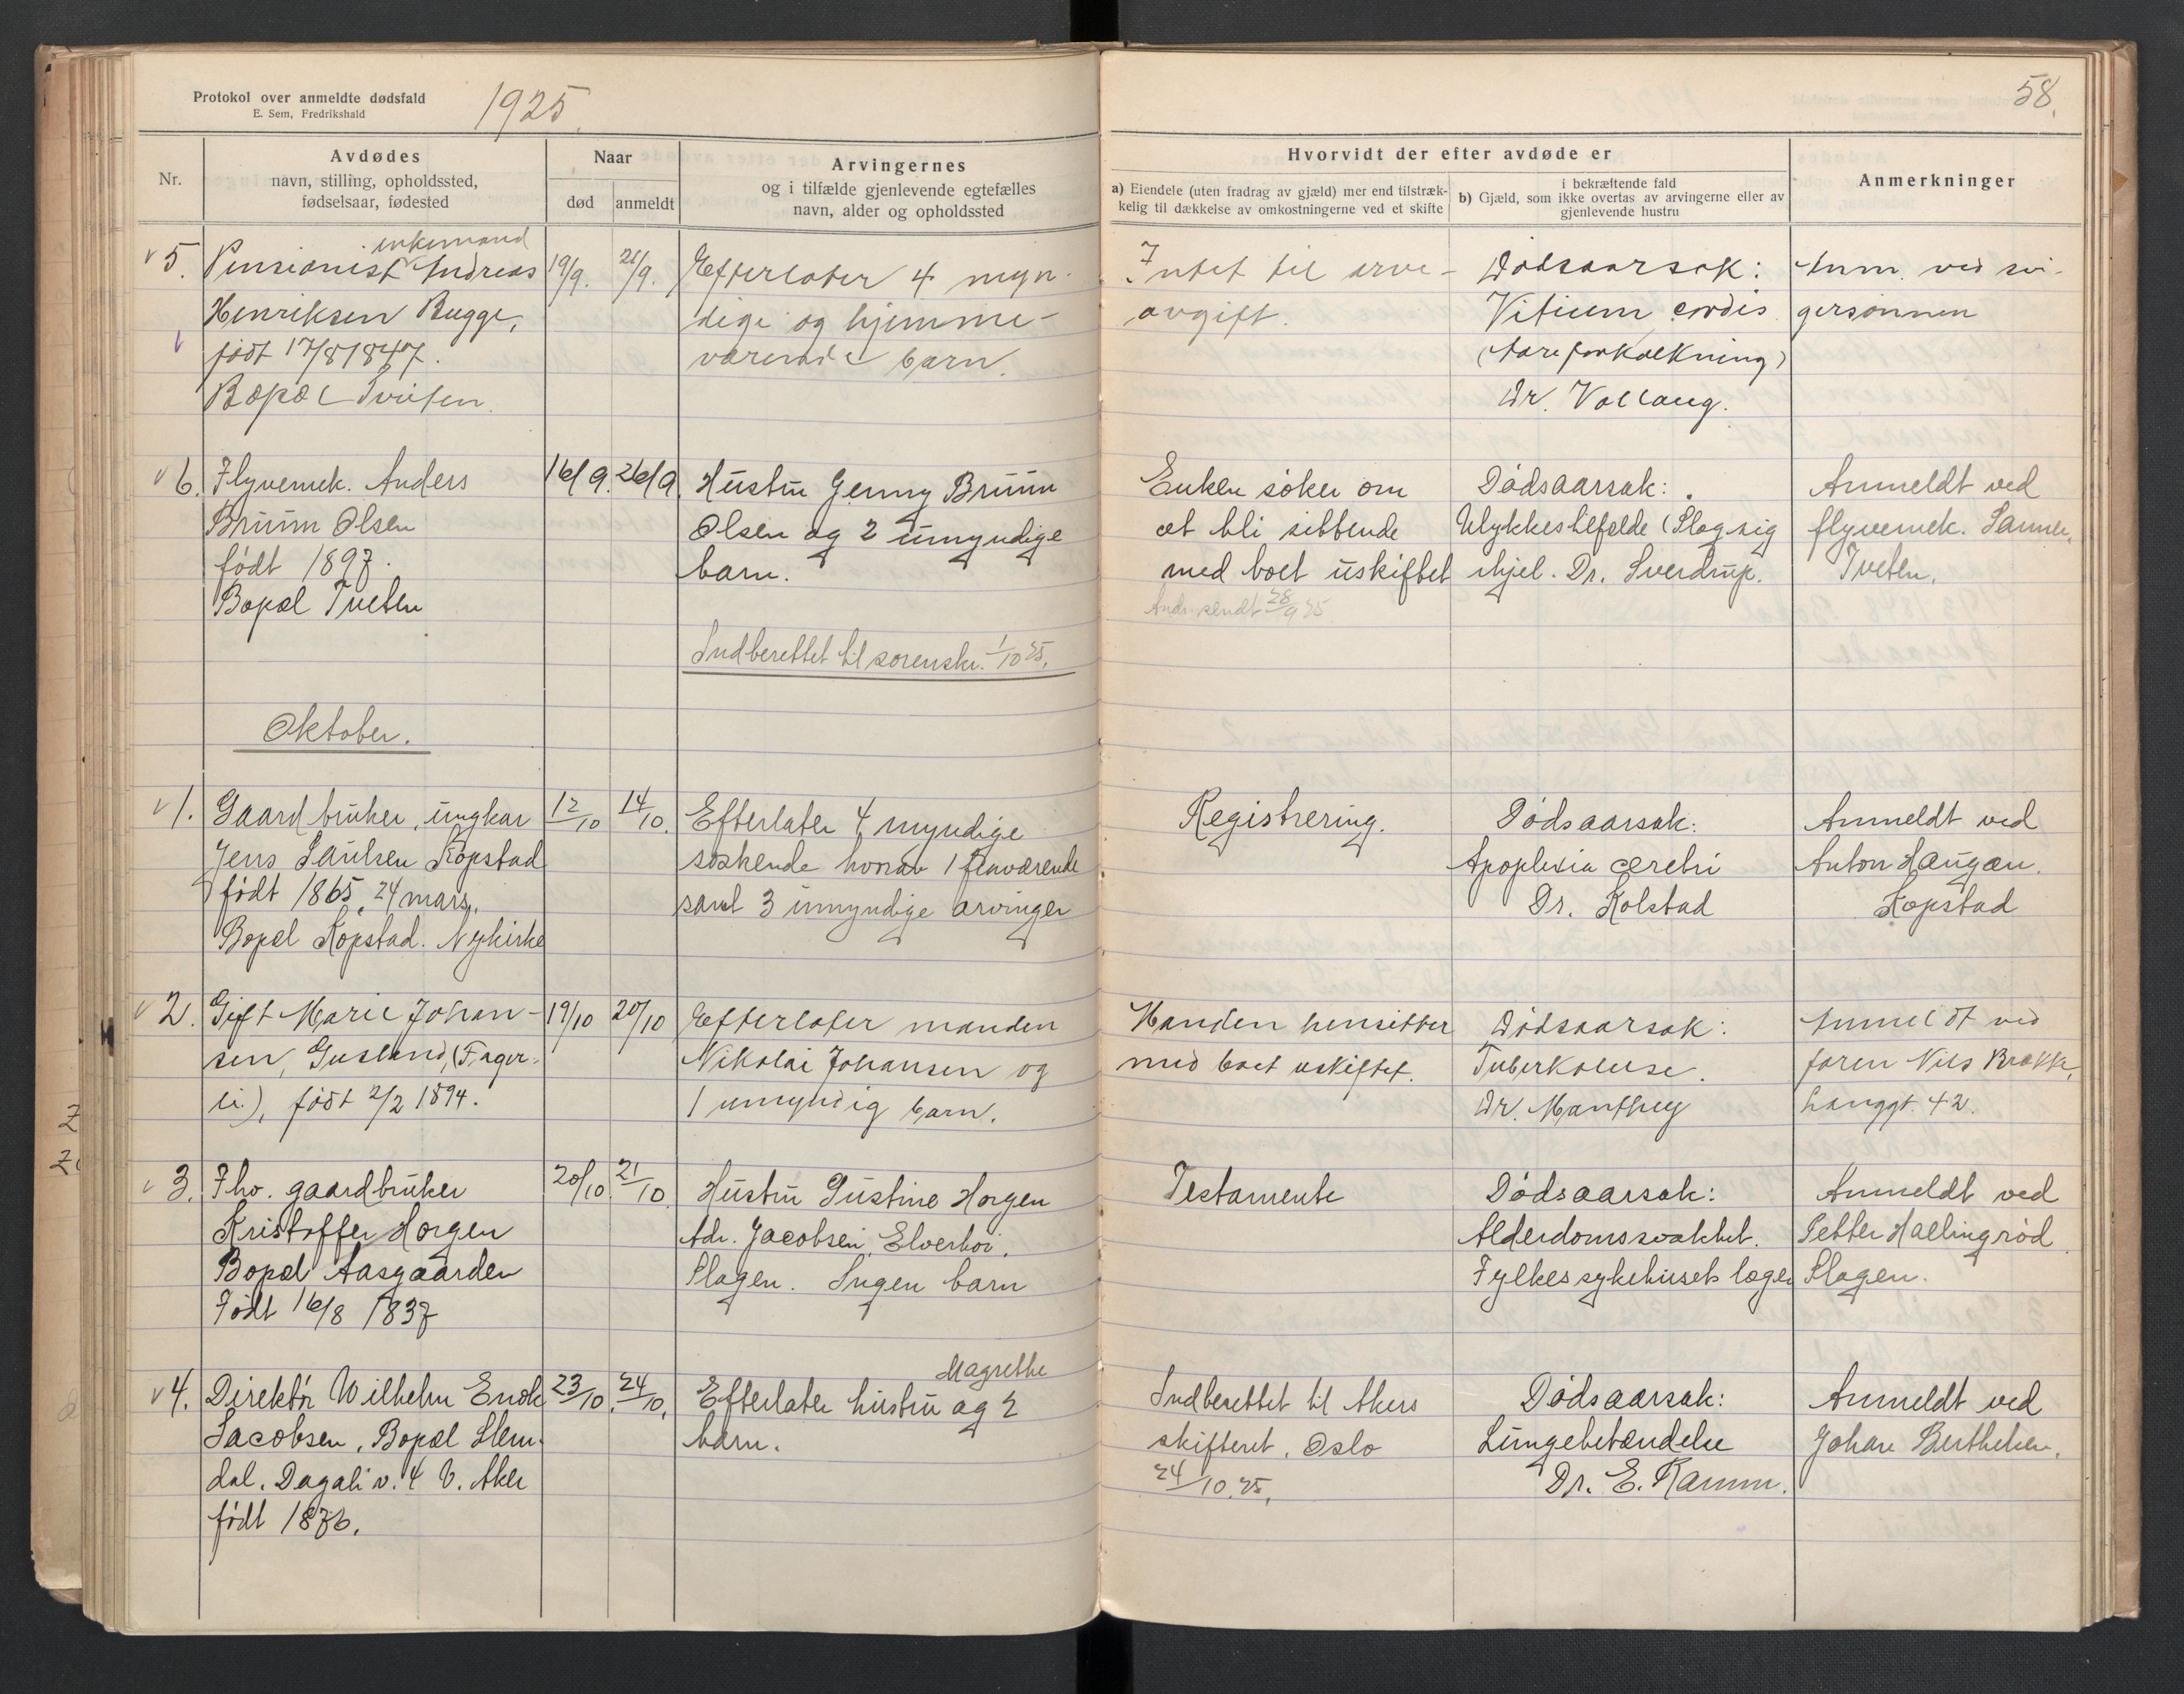 Protokol over anmeldte dødsfald
E. Sem, Fredrikshald
1925.
58.
Nr.
Avdødes
navn, stilling, opholdssted,
fødselsaar, fødested
Naar
død
anmeldt
Arvingernes
og i tilfælde gjenlevende egtefælles
navn, alder og opholdssted
Hvorvidt der efter avdøde er
a) Eiendele (uten fradrag av gjæld) mer end tilstræk-
kelig til dækkelse av omkostningerne ved et skifte
i bekræftende fald
b) Gjæld, som ikke overtas av arvingerne eller av
gjenlevende hustru
Anmerkninger
v 5.
enkemand
Pensionist Andreas
Henriksen Bugge,
født 17/8 1847.
Bopæl Tveten.
19/9.
21/9.
Efterlater 4 myn-
dige og hjemme-
værende barn.
Intet til arve-
avgift.
Dødsaarsak:
Vitium cordis
(Aareforkalkning)
Dr. Vollaug.
Anm. ved svi-
gersønnen
v 6.
Flyvemek. Anders
Bruun Olsen
født 1897.
Bopæl Tveten
16/9.
26/9.
Hustru Jenny Bruun
Olsen og 2 umyndige
barn.
Indberettet til sorenskr. 1/10 25.
Enken søker om
at bli sittende
med boet uskiftet
Andr. sendt 28/9 25
Dødsaarsak:
Ulykkestilfælde (Slog sig
ihjel. Dr. Sverdrup.
Anmeldt ved
flyvemek. Sannes,
Tveten.
Oktober.
v 1.
Gaardbruker, ungkar
Jens Paulsen Kopstad
født 1865, 24 mars.
Bopæl Kopstad. Nykirke
12/10
14/10.
Efterlater 4 myndige
søskende hvorav 1 fraværende
samt 3 umyndige arvinger
Registrering.
Dødsaarsak:
Apoplexia cerebri
Dr. Kolstad
Anmeldt ved
Anton Haugan.
Kopstad
v 2.
Gift Marie Johan-
sen, Gusland, (Fager-
li), født 2/2 1894.
19/10
20/10
Efterlater manden
Nikolai Johansen og
1 umyndig barn.
Manden hensitter
med boet uskiftet.
Dødsaarsak:
Tuberkolose.
Dr. Manthey
Anmeldt ved
faren Nils Brække,
Langgt. 42.
v 3.
Fhv. gaardbruker
Kristoffer Horgen
Bopæl Aasgaarden
Født 16/8 1837
20/10.
21/10.
Hustru Gustine Horgen
Adr. Jacobsen, Elverhøi,
Slagen. Ingen barn
Testamente
Dødsaarsak:
Alderdomssvakhet.
Fylkessykehusets læger
Anmeldt ved
Petter Hallingrød
Slagen.
v 4.
Direktør Wilhelm Enok
Jacobsen, Bopæl Slem-
dal. Dagali v. 4 V. Aker
født 1876.
23/10.
24/10.
Magrethe
Efterlater hustru og 2
barn.
Indberettet til Akers
skifteret, Oslo
24/10.25.
Dødsaarsak:
Lungebetændelse
Dr. E. Ramm.
Anmeldt ved
Johan Berthelsen.